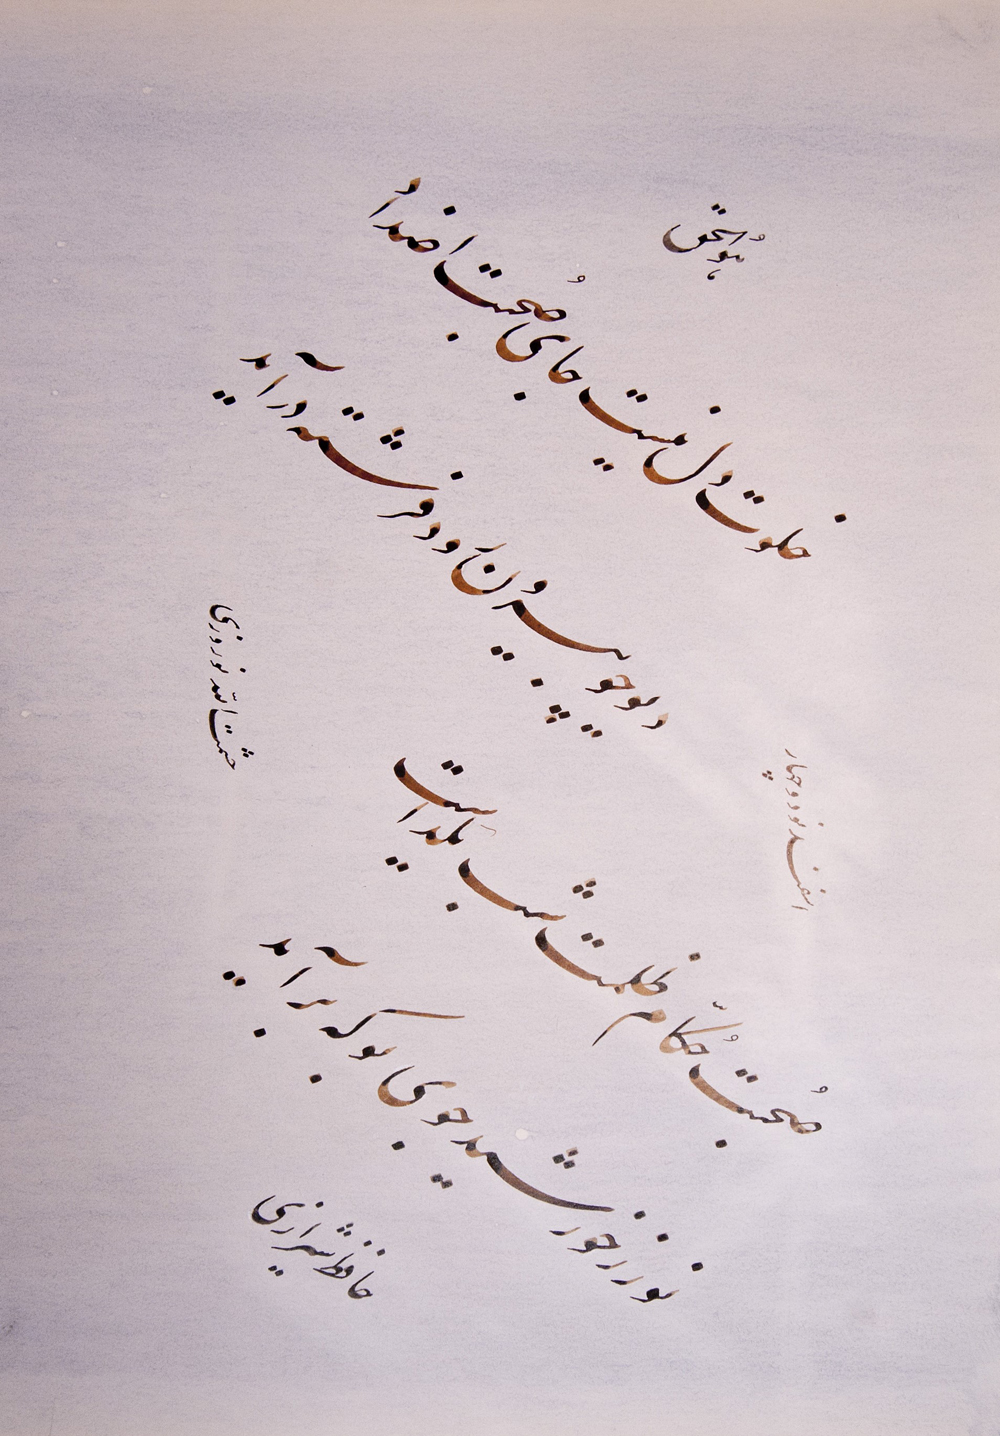 هوالحق
خلوت دل نیست جای صُحبت اضداد
دیو چو بیرون رود فرشته درآید
صُحبت حُکّام ظلمت شب یلداست
نور ز خورشید جوی بو که برآید
حافظ شیرازی
حشمت الله نوروزی
اسفند نود و چهار